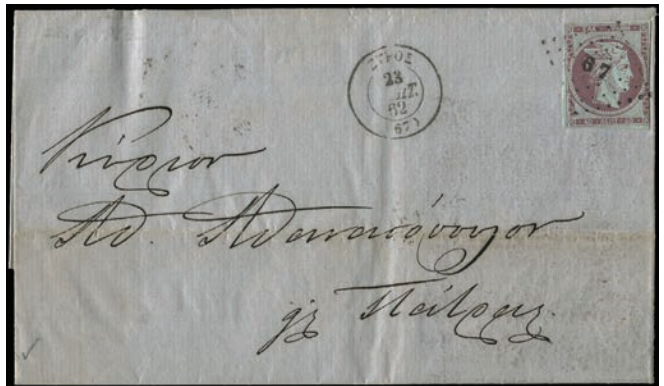 ΣΥΡΟΣ
23
62
67
67
Κύριον
Αθ. Αθανασόπουλον
Πάτρας